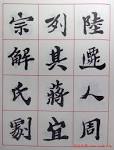 陸人周
列其蔣宜
宗解氏